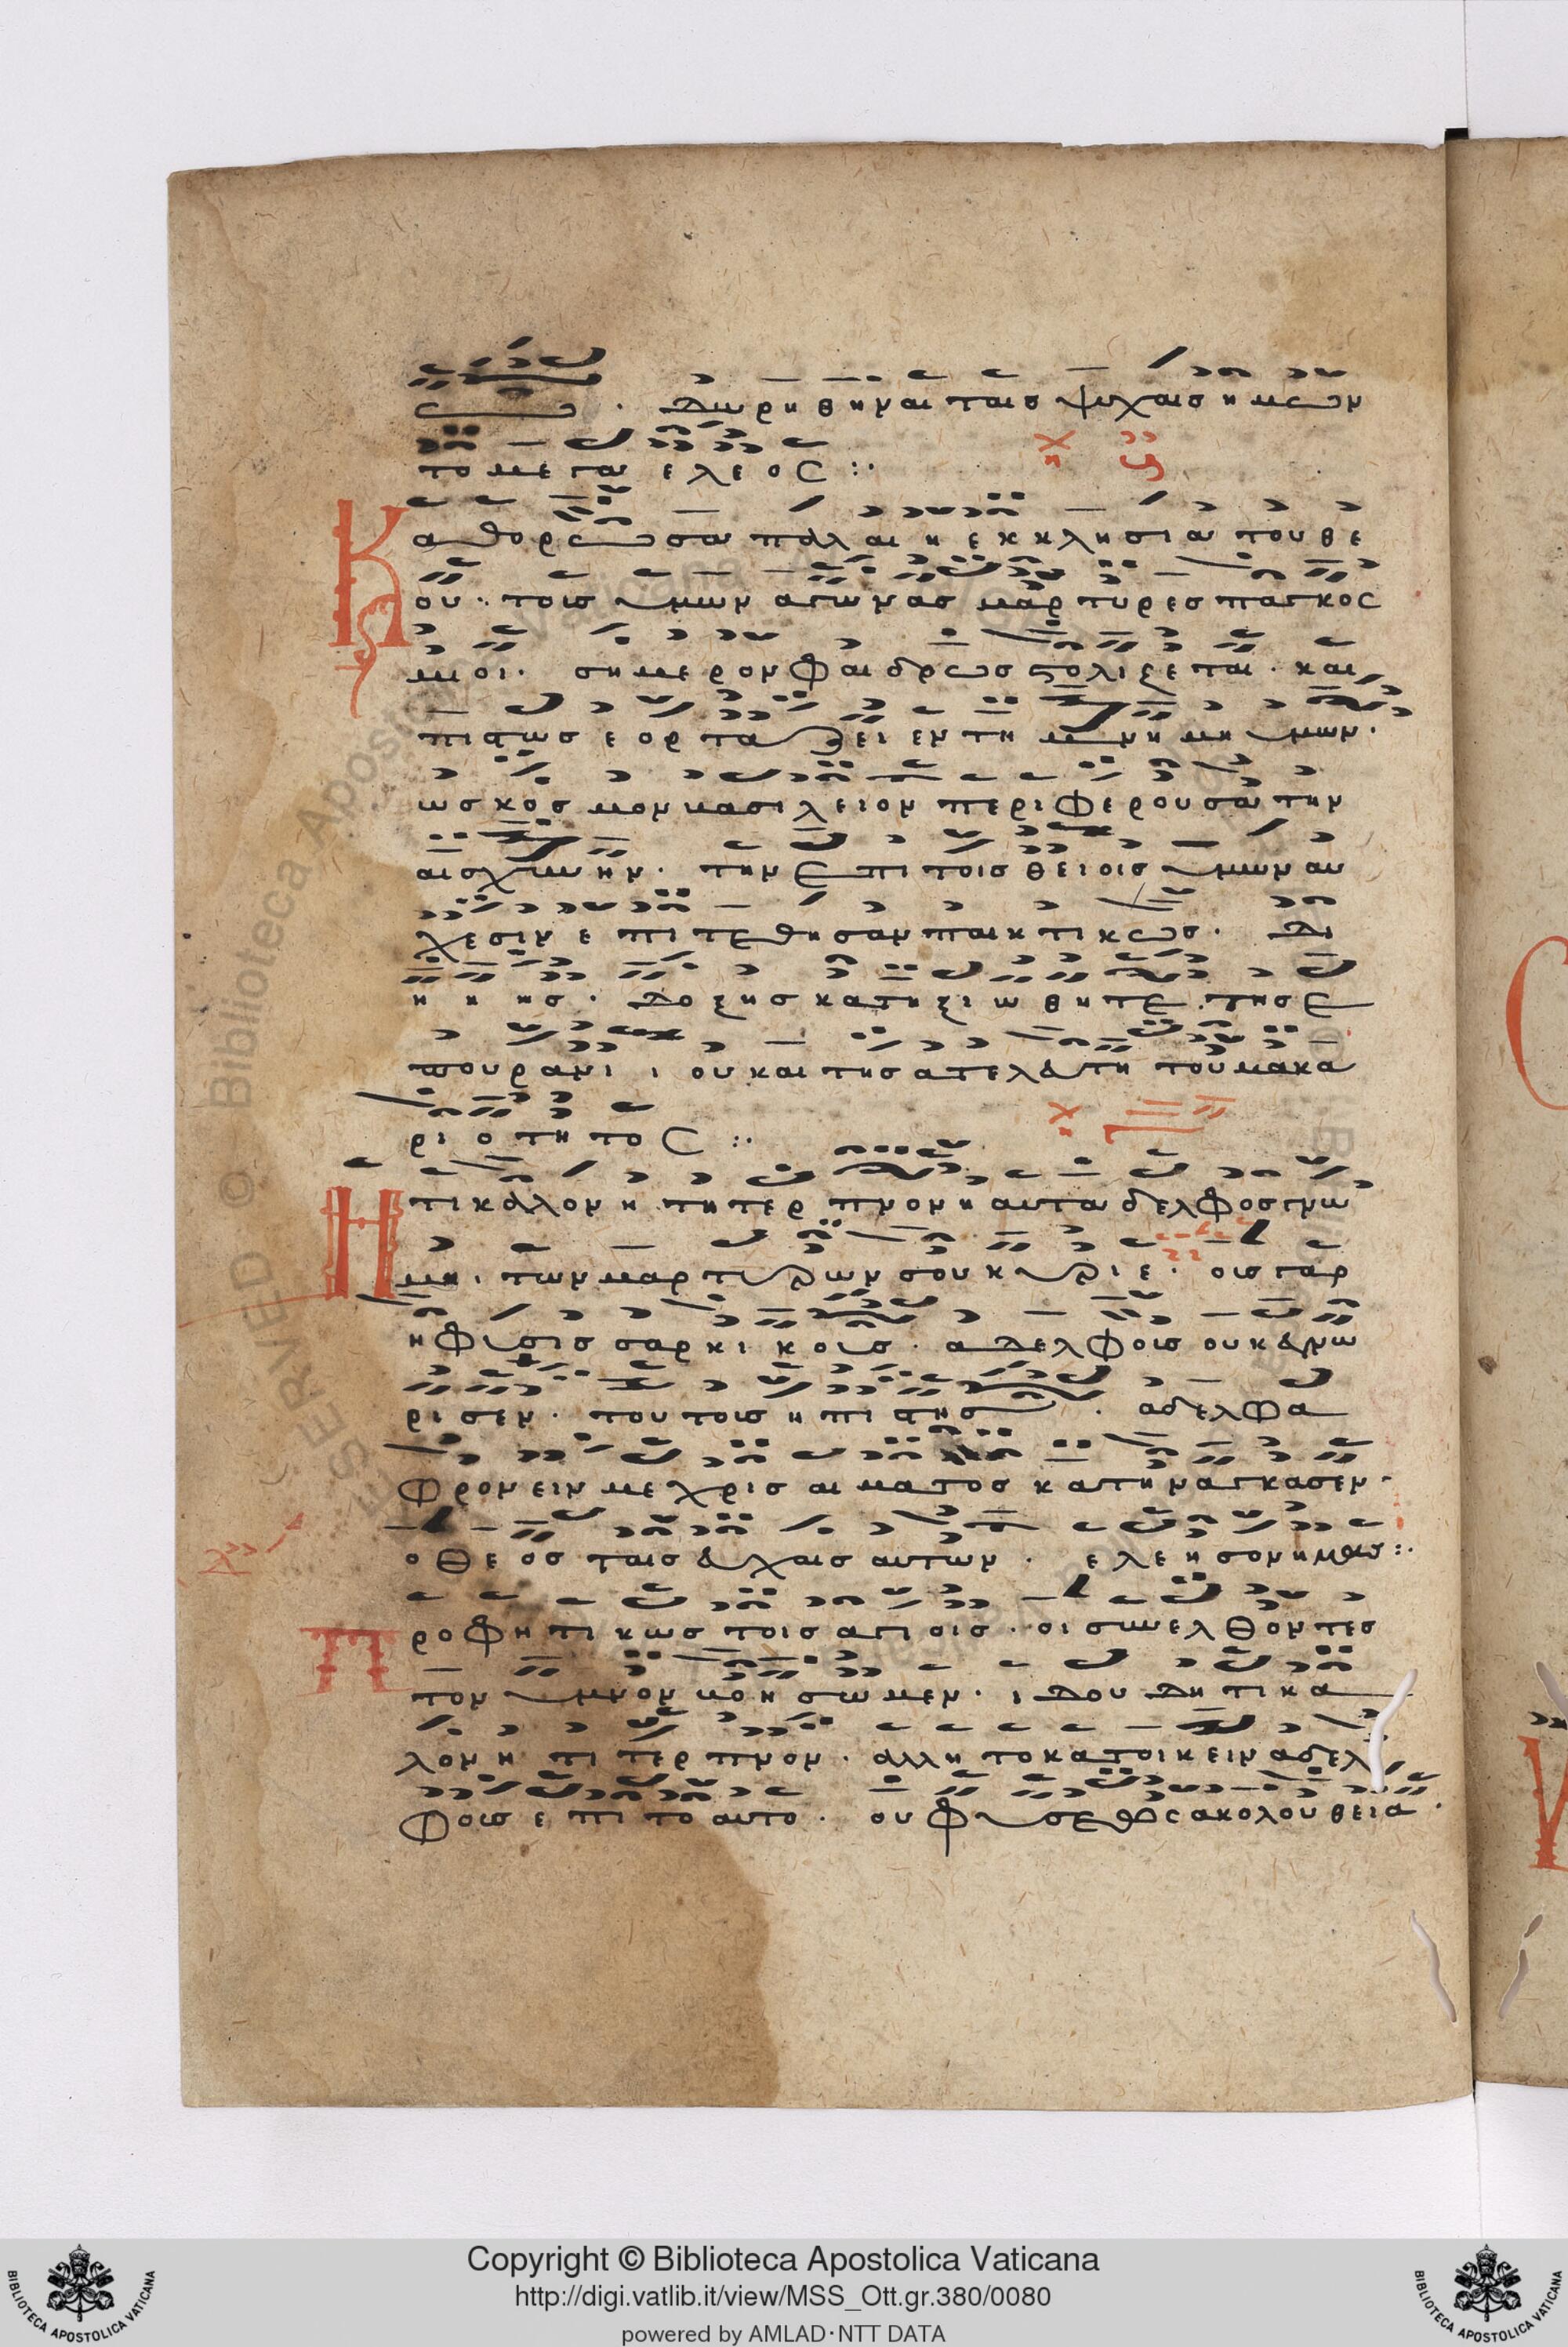 ω · δωρηθηναι ταισ ψυχαισ ημων
το μεγα ελεοσ :·
Καθορωσα παλαι η εκκλησια του θε
ου · τουσ υμων αγωνασ μαρτυρεσ παγκοσ
μοι · σημερον φαιδρωσ στολιζεται · και
πιστωσ εορταζει εν τη μνημη υμων ·
ωσ κοσμον βασιλειον περιφερουσα την
αισχυνην · την επι τοισ θειοισ υμων αυ
χεσιν επιτεθησαν παικτικωσ · δι
η η ησ · δοξησ κατηξιωθητε τησ ε
πουρανι ι ου και τησ ατελευτητου μακα
ριοτητοσ :·
Η τι καλον η τι τερπνον η αυταδελφοσ γνω
μη · των μαρτυρων σου κυριε · ουσ γαρ
η φυσισ σαρκικουσ · αδελφουσ ουκ εγνω
ρισεν · τουτουσ η πιστισ · αδελφα
φρονειν μεχρισ αιματοσ κατηναγκασεν ·
ο Θεοσ ταισ ευχαισ αυτων · ελεησον ημασ :·
Προφητικωσ τοισ αγιοισ · οι συνελθοντεσ
τον υμνον βοησωμεν · ιδου δη τι κα
λον η τι τερπνον · αλλ η το κατοικειν αδελ
φουσ επι το αυτο · ου φυσεωσ ακολουθεια ·
Copyright © Biblioteca Apostolica Vaticana
http://digi.vatlib.it/view/MSS_Ott.gr.380/0080
powered by AMLAD·NTT DATA
BIBLIOTECA APOSTOLICA VATICANA
BIBLIOTECA APOSTOLICA VATICANA